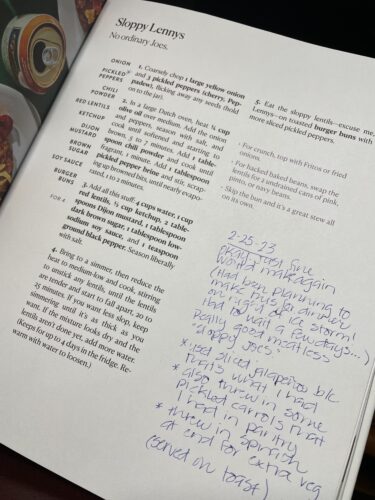 Sloppy Lennys
No ordinary Joes.
ONION
PICKLED
PEPPERS
CHILI
POWDER
RED LENTILS
KETCHUP
DIJON
MUSTARD
BROWN
SUGAR
SOY SAUCE
BURGER
BUNS
FOR 4
1. Coarsely chop 1 large yellow onion
and 3 pickled peppers (cherry, Pep-
padew), flicking away any seeds (hold
on to the jar).
2. In a large Dutch oven, heat ¼ cup
olive oil over medium. Add the onion
and cook until softened and starting to
brown, 5 to 7 minutes. Add 1 table-
spoon chili powder and cook until
fragrant, 1 minute. Add 1 tablespoon
pickled pepper brine and stir, scrap-
ing up browned bits, until nearly evapo-
rated, 1 to 2 minutes.
3. Add all this stuff: 4 cups water, 1 cup
red lentils, ½ cup ketchup, 2 table-
spoons Dijon mustard, 1 tablespoon
dark brown sugar, 1 tablespoon low-
sodium soy sauce, and 1 teaspoon
ground black pepper. Season liberally
with salt.
4. Bring to a simmer, then reduce the
heat to medium-low and cook, stirring
to unstick any lentils, until the lentils
are tender and start to fall apart, 20 to
25 minutes. If you want less slop, keep
simmering until it's as thick as you
want. If the mixture looks dry and the
lentils aren't done yet, add more water.
(Keeps for up to 4 days in the fridge. Re-
warm with water to loosen.)
5. Eat the sloppy lentils—excuse me,
Lennys—on toasted burger buns with
more sliced pickled peppers.
· For crunch, top with Fritos or fried
onions.
· For jacked baked beans, swap the
lentils for 2 undrained cans of pink,
pinto, or navy beans.
· Skip the bun and it's a great stew all
on its own.
2-25-23
okay, just fine
would make again
(Had been planning to
make this for dinner
on night of ice storm!
Had to wait a few days...)
Really good meatless
"sloppy Joes"
* used sliced jalapeños b/c
that's what I had
* also threw in some
pickled carrots that
I had in pantry
* threw in spinach
at end for extra veg
(served on toast)